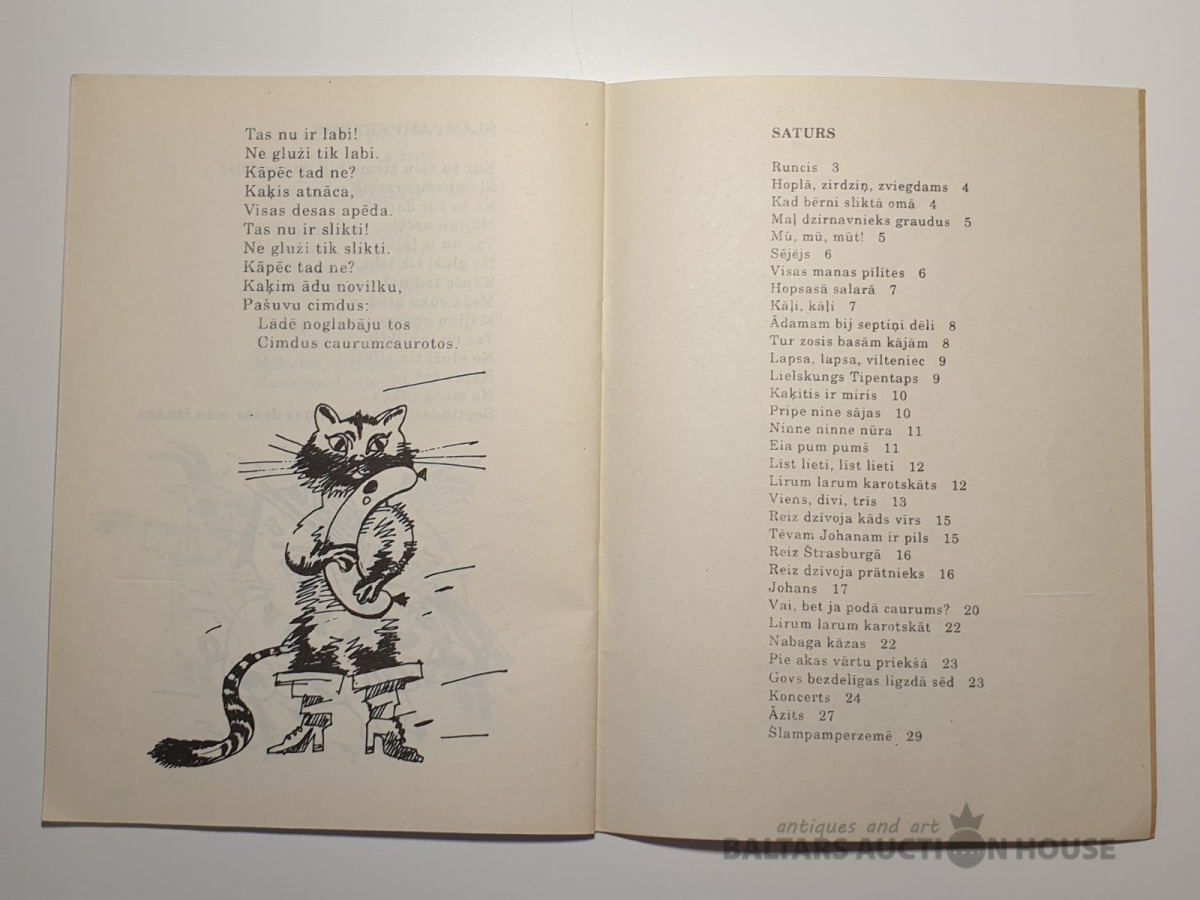 Tas nu ir labi!
Ne gluži tik labi.
Kāpēc tad ne?
Kaķis atnāca,
Visas desas apēda.
Tas nu ir slikti!
Ne gluži tik slikti.
Kāpēc tad ne?
Kaķim ādu novilku,
Pašuvu cimdus:
Lādē noglabāju tos
Cimdus caurumcaurotos.
SATURS
Runcis 3
Hoplā, zirdziņ, zviegdams 4
Kad bērni sliktā omā 4
Maļ dzirnavnieks graudus 5
Mū, mū, mūt! 5
Sējējs 6
Visas manas pīlītes 6
Hopsasā salarā 7
Kāļi, kāļi 7
Ādamam bij septiņi dēli 8
Tur zosis basām kājām 8
Lapsa, lapsa, vilteniec 9
Lielskungs Tipentaps 9
Kaķītis ir miris 10
Pripe nine sājas 10
Ninne ninne nūra 11
Eia pum pumš 11
Līst lieti, līst lieti 12
Lirum larum karotskāts 12
Viens, divi, trīs 13
Reiz dzīvoja kāds vīrs 15
Tēvam Johanam ir pils 15
Reiz Štrasburgā 16
Reiz dzīvoja prātnieks 16
Johans 17
Vai, bet ja podā caurums? 20
Lirum larum karotskāt 22
Nabaga kāzas 22
Pie akas vārtu priekšā 23
Govs bezdelīgas ligzdā sēd 23
Koncerts 24
Āzīts 27
Šlampamperzemē 29
antiques and art
BALTARS AUCTION HOUSE